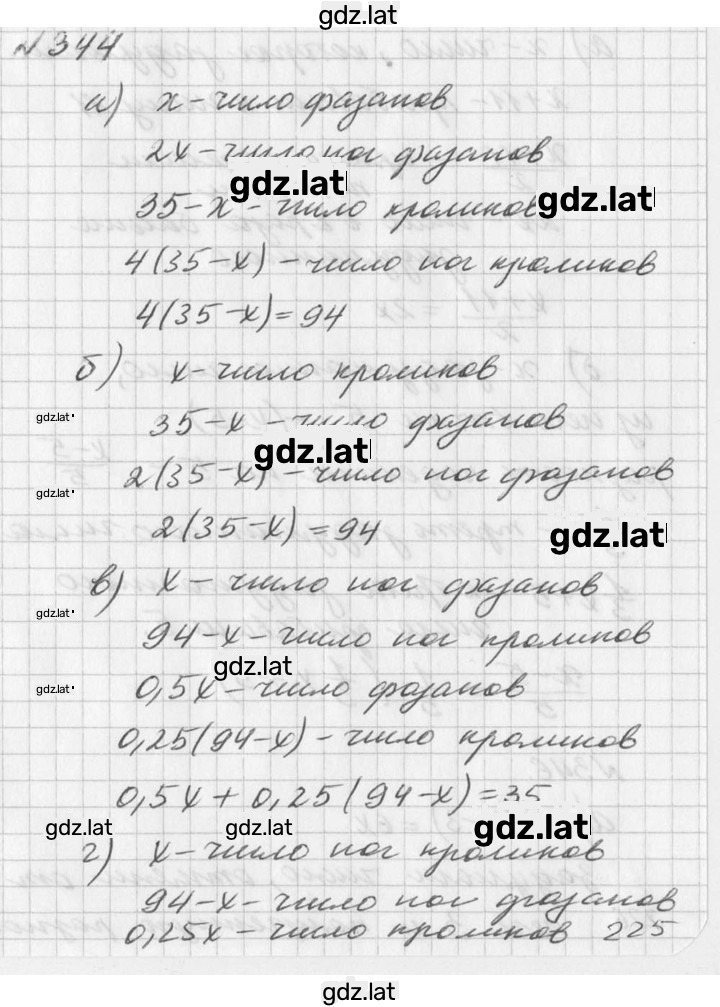 gdz.lat
№ 344
а) x - число фазанов
2x - число ног фазанов
gdz.lat
gdz.lat
35 - x - число кроликов
4(35 - x) - число ног кроликов
4(35 - x) = 94
б) x - число кроликов
gdz.lat
35 - x - число фазанов
gdz.lat
2(35 - x) - число ног фазанов
gdz.lat
2(35 - x) = 94
gdz.lat
в) x - число ног фазанов
gdz.lat
94 - x - число ног кроликов
gdz.lat
gdz.lat
0,5x - число фазанов
0,25(94 - x) - число кроликов
0,5x + 0,25(94 - x) = 35
gdz.lat
gdz.lat
gdz.lat
г) x - число ног кроликов
94 - x - число ног фазанов
0,25x - число кроликов 225
gdz.lat